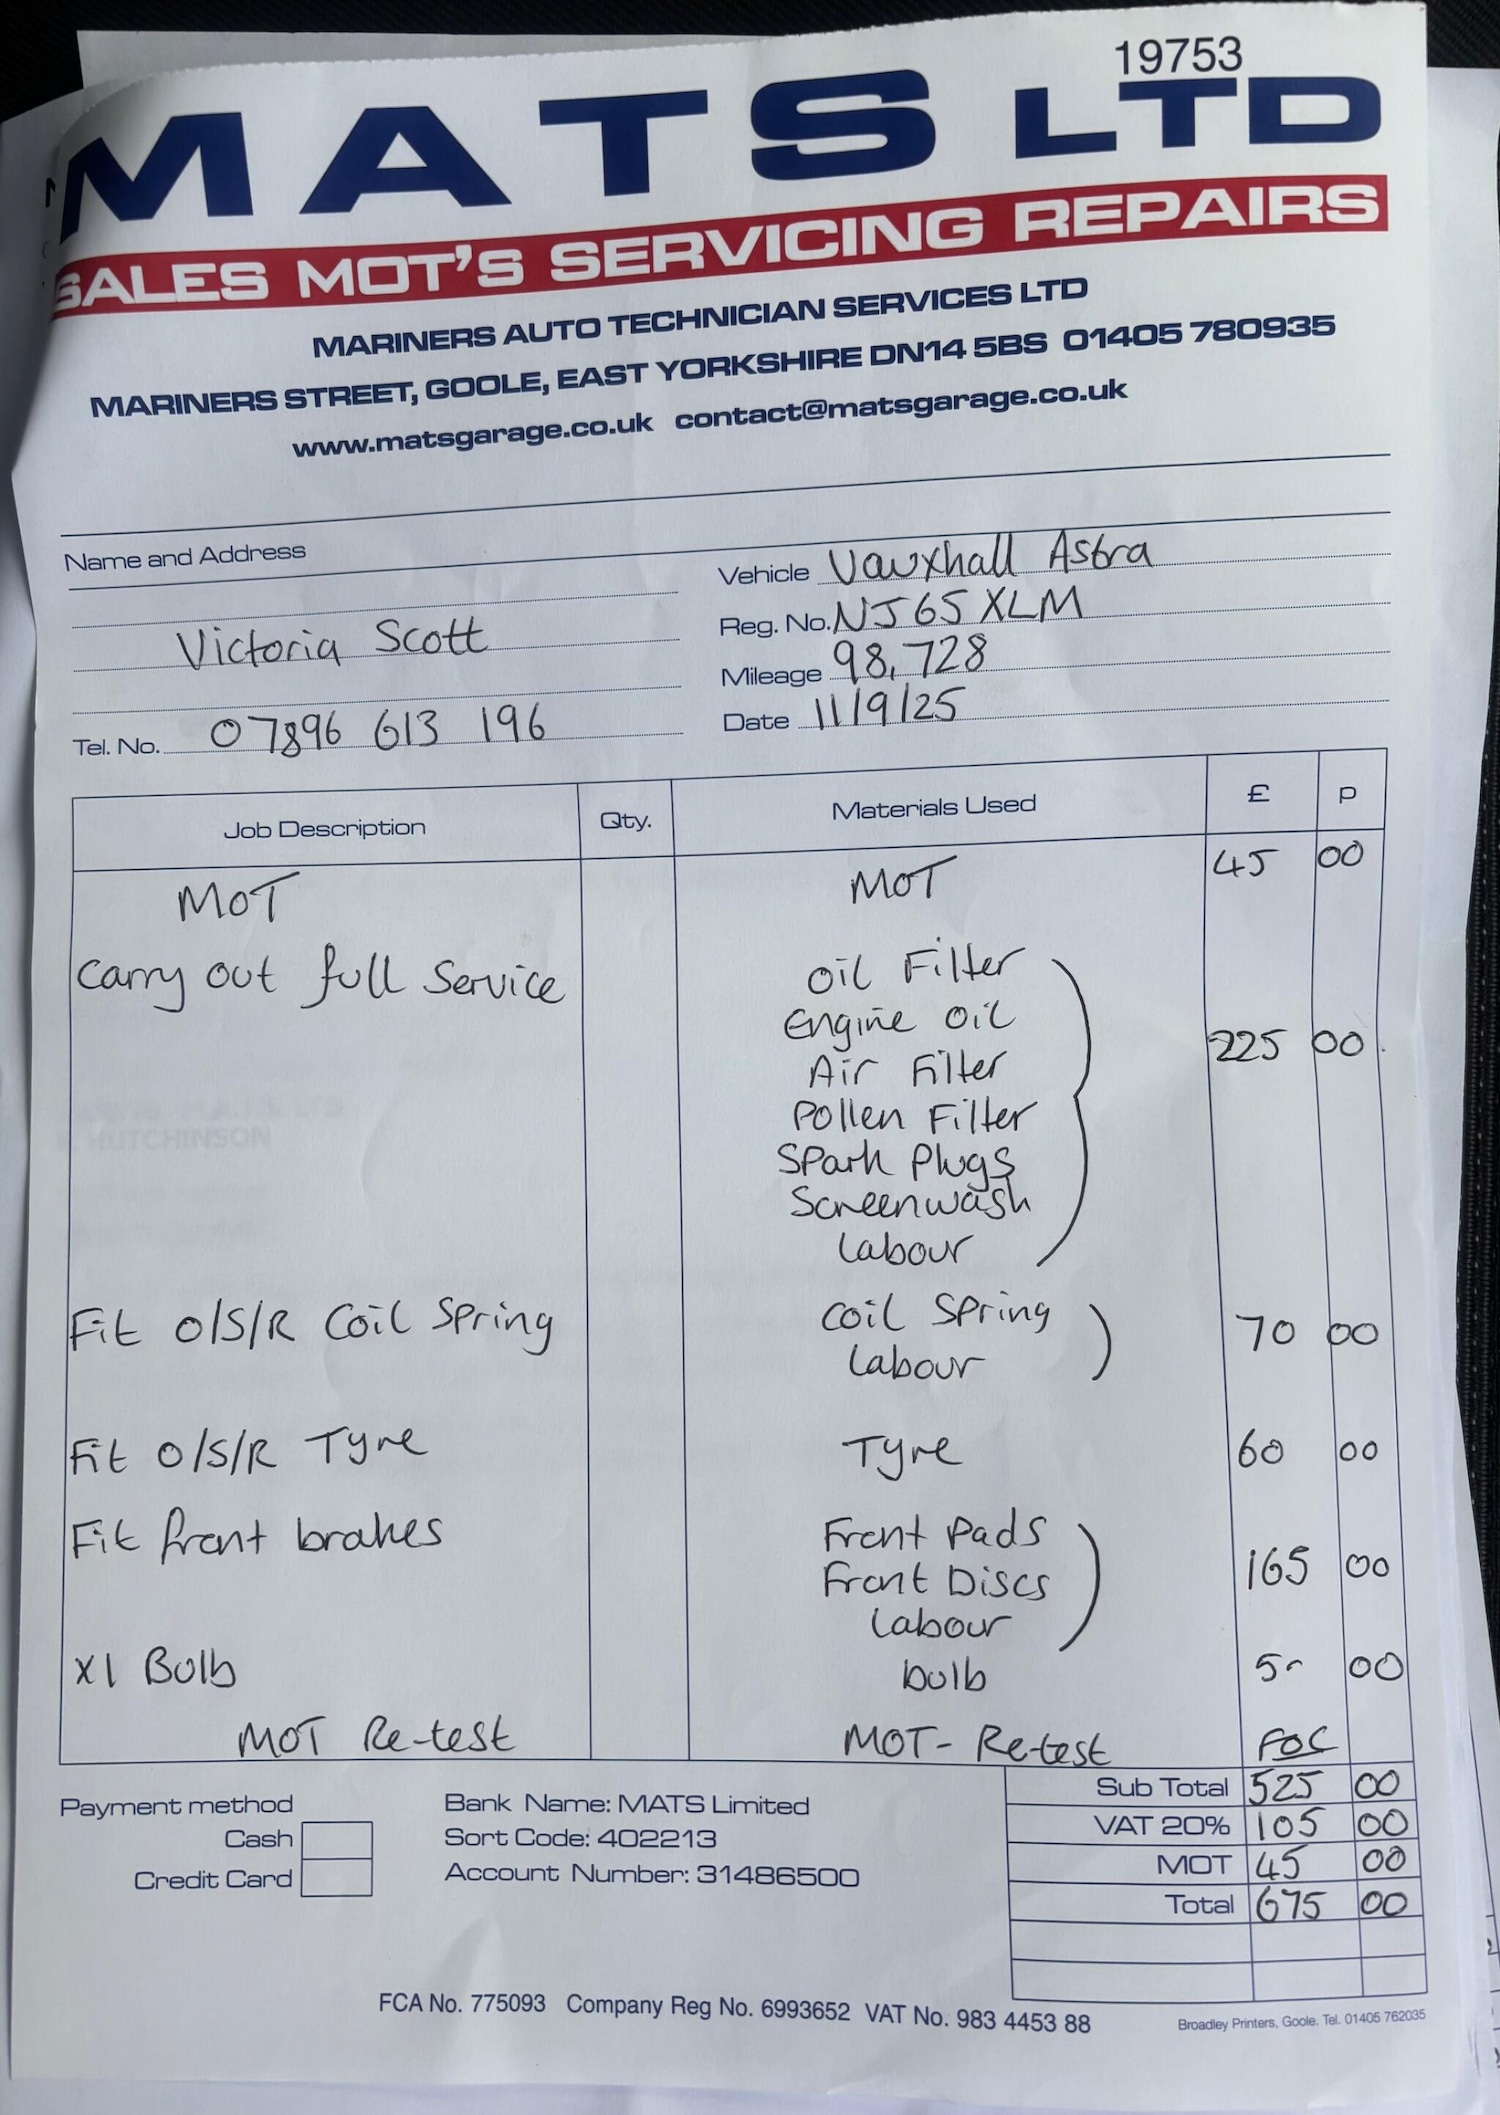 19753
MATS LTD
SALES MOT'S SERVICING REPAIRS
MARINERS AUTO TECHNICIAN SERVICES LTD
MARINERS STREET, GOOLE, EAST YORKSHIRE DN14 5BS 01405 780935
www.matsgarage.co.uk contact@matsgarage.co.uk
Name and Address
Victoria Scott
Tel. No. 07896 613 196
Vehicle Vauxhall Astra
Reg. No. NJ65 XLM
Mileage 98,728
Date 11/9/25
Job Description Qty. Materials Used £ P
MOT MOT 45 00
Carry out full Service Oil Filter
Engine Oil
Air Filter 225 00
Pollen Filter
Spark Plugs
Screenwash
Labour
Fit O/S/R Coil Spring Coil Spring 70 00
Labour
Fit O/S/R Tyre Tyre 60 00
Fit front brakes Front Pads
Front Discs 165 00
Labour
x1 Bulb bulb 5- 00
MOT Re-test MOT-Re-test FOC
Payment method
Cash
Credit Card
Bank Name: MATS Limited
Sort Code: 402213
Account Number: 31486500
Sub Total 525 00
VAT 20% 105 00
MOT 45 00
Total 675 00
FCA No. 775093 Company Reg No. 6993652 VAT No. 983 4453 88
Broadley Printers, Goole. Tel. 01405 762035